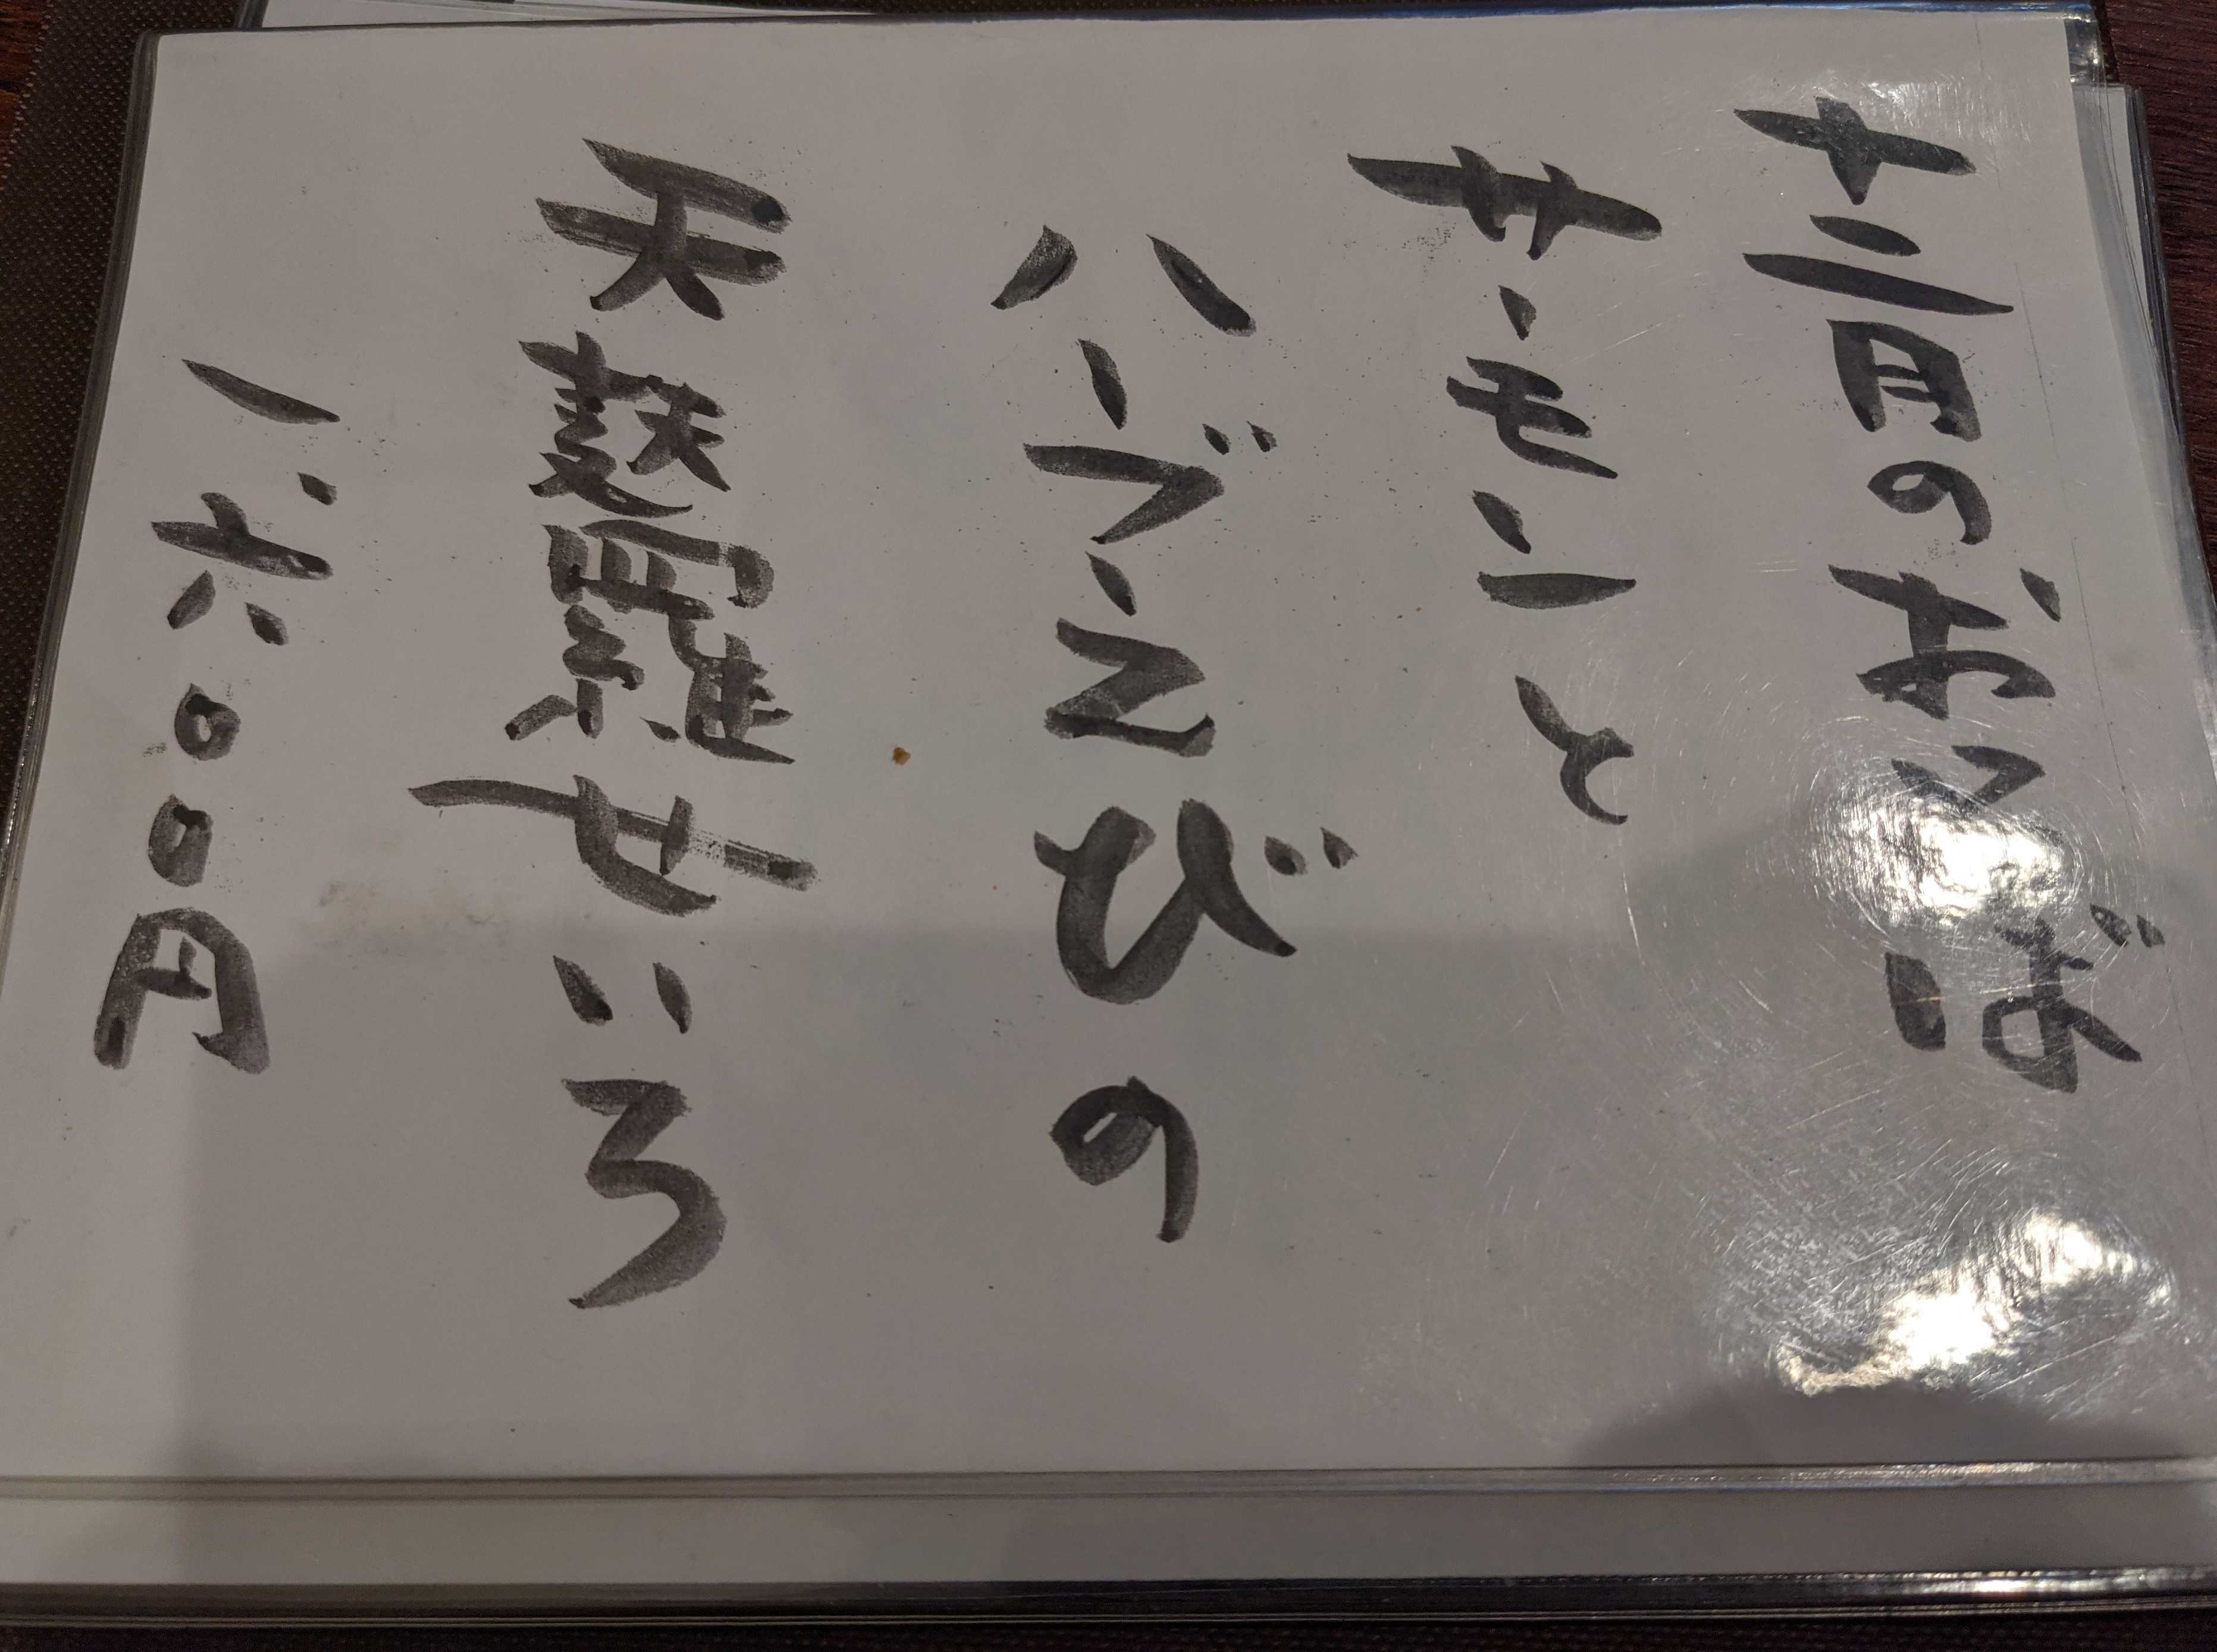 十二月のおそば
サーモンと
ハーブえびの
天麩羅せいろ
一、六〇〇円